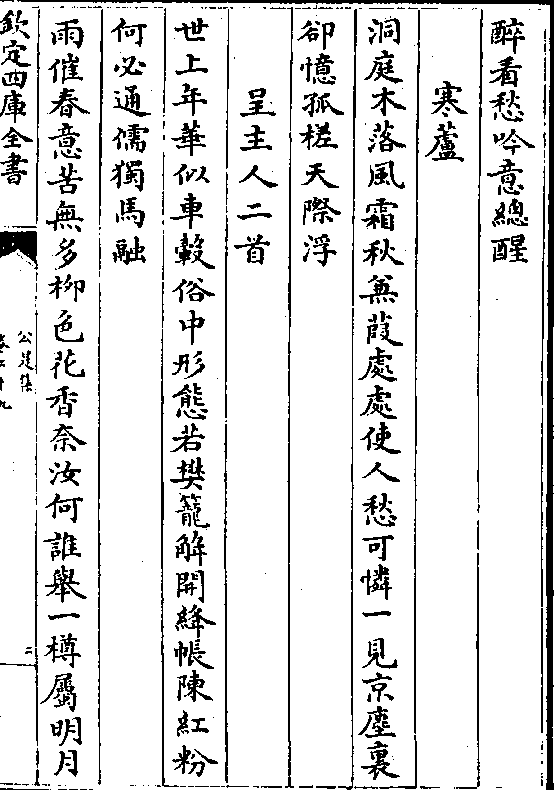 醉看愁吟意總醒
寒蘆
洞庭木落風霜秋蒹葭處處使人愁可憐一見京塵裏
卻憶孤槎天際浮
呈主人二首
世上年華似車轂俗中形態若樊籠解開絳帳陳紅粉
何必通儒獨馬融
雨催春意苦無多柳色花香奈汝何誰舉一樽屬明月
欽定四庫全書
公是集
二